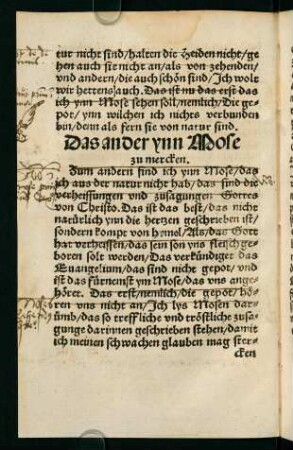 tur nicht sind/halten die Heiden nicht/ge
hen auch sie nicht an/als von zehenden/
vnd andern/die auch schön sind/Ich wolt
wir hettens auch. Das ist nu das erst das
ich ynn Mose sehen soll/nemlich/Die ge-
pot/ynn wilchen ich nichts verbunden
bin/denn als fern sie von natur sind.
Das ander ynn Mose
zu mercken.
Zum andern find ich ynn Mose/das
ich aus der natur nicht hab/das sind die
verheissungen vnd zusagungen Gottes
von Christo. Das ist das best/das nicht
natürlich ynn die hertzen geschrieben ist/
sondern kompt von hymel/Als/das Gott
hat verheissen/das sein son yns fleisch ge
boren solt werden/Das verkündiget das
Euangelium/das sind nicht gepot/vnd
ist das fürnemst ym Mose/das vns ange-
höret. Das erst/nemlich/die gepot/hö-
ren vns nicht an/Ich lys Mosen dar-
umb/das so treffliche vnd tröstliche zusa-
gunge darinnen geschrieben stehen/damit
ich meinen schwachen glauben mag ster-
cken